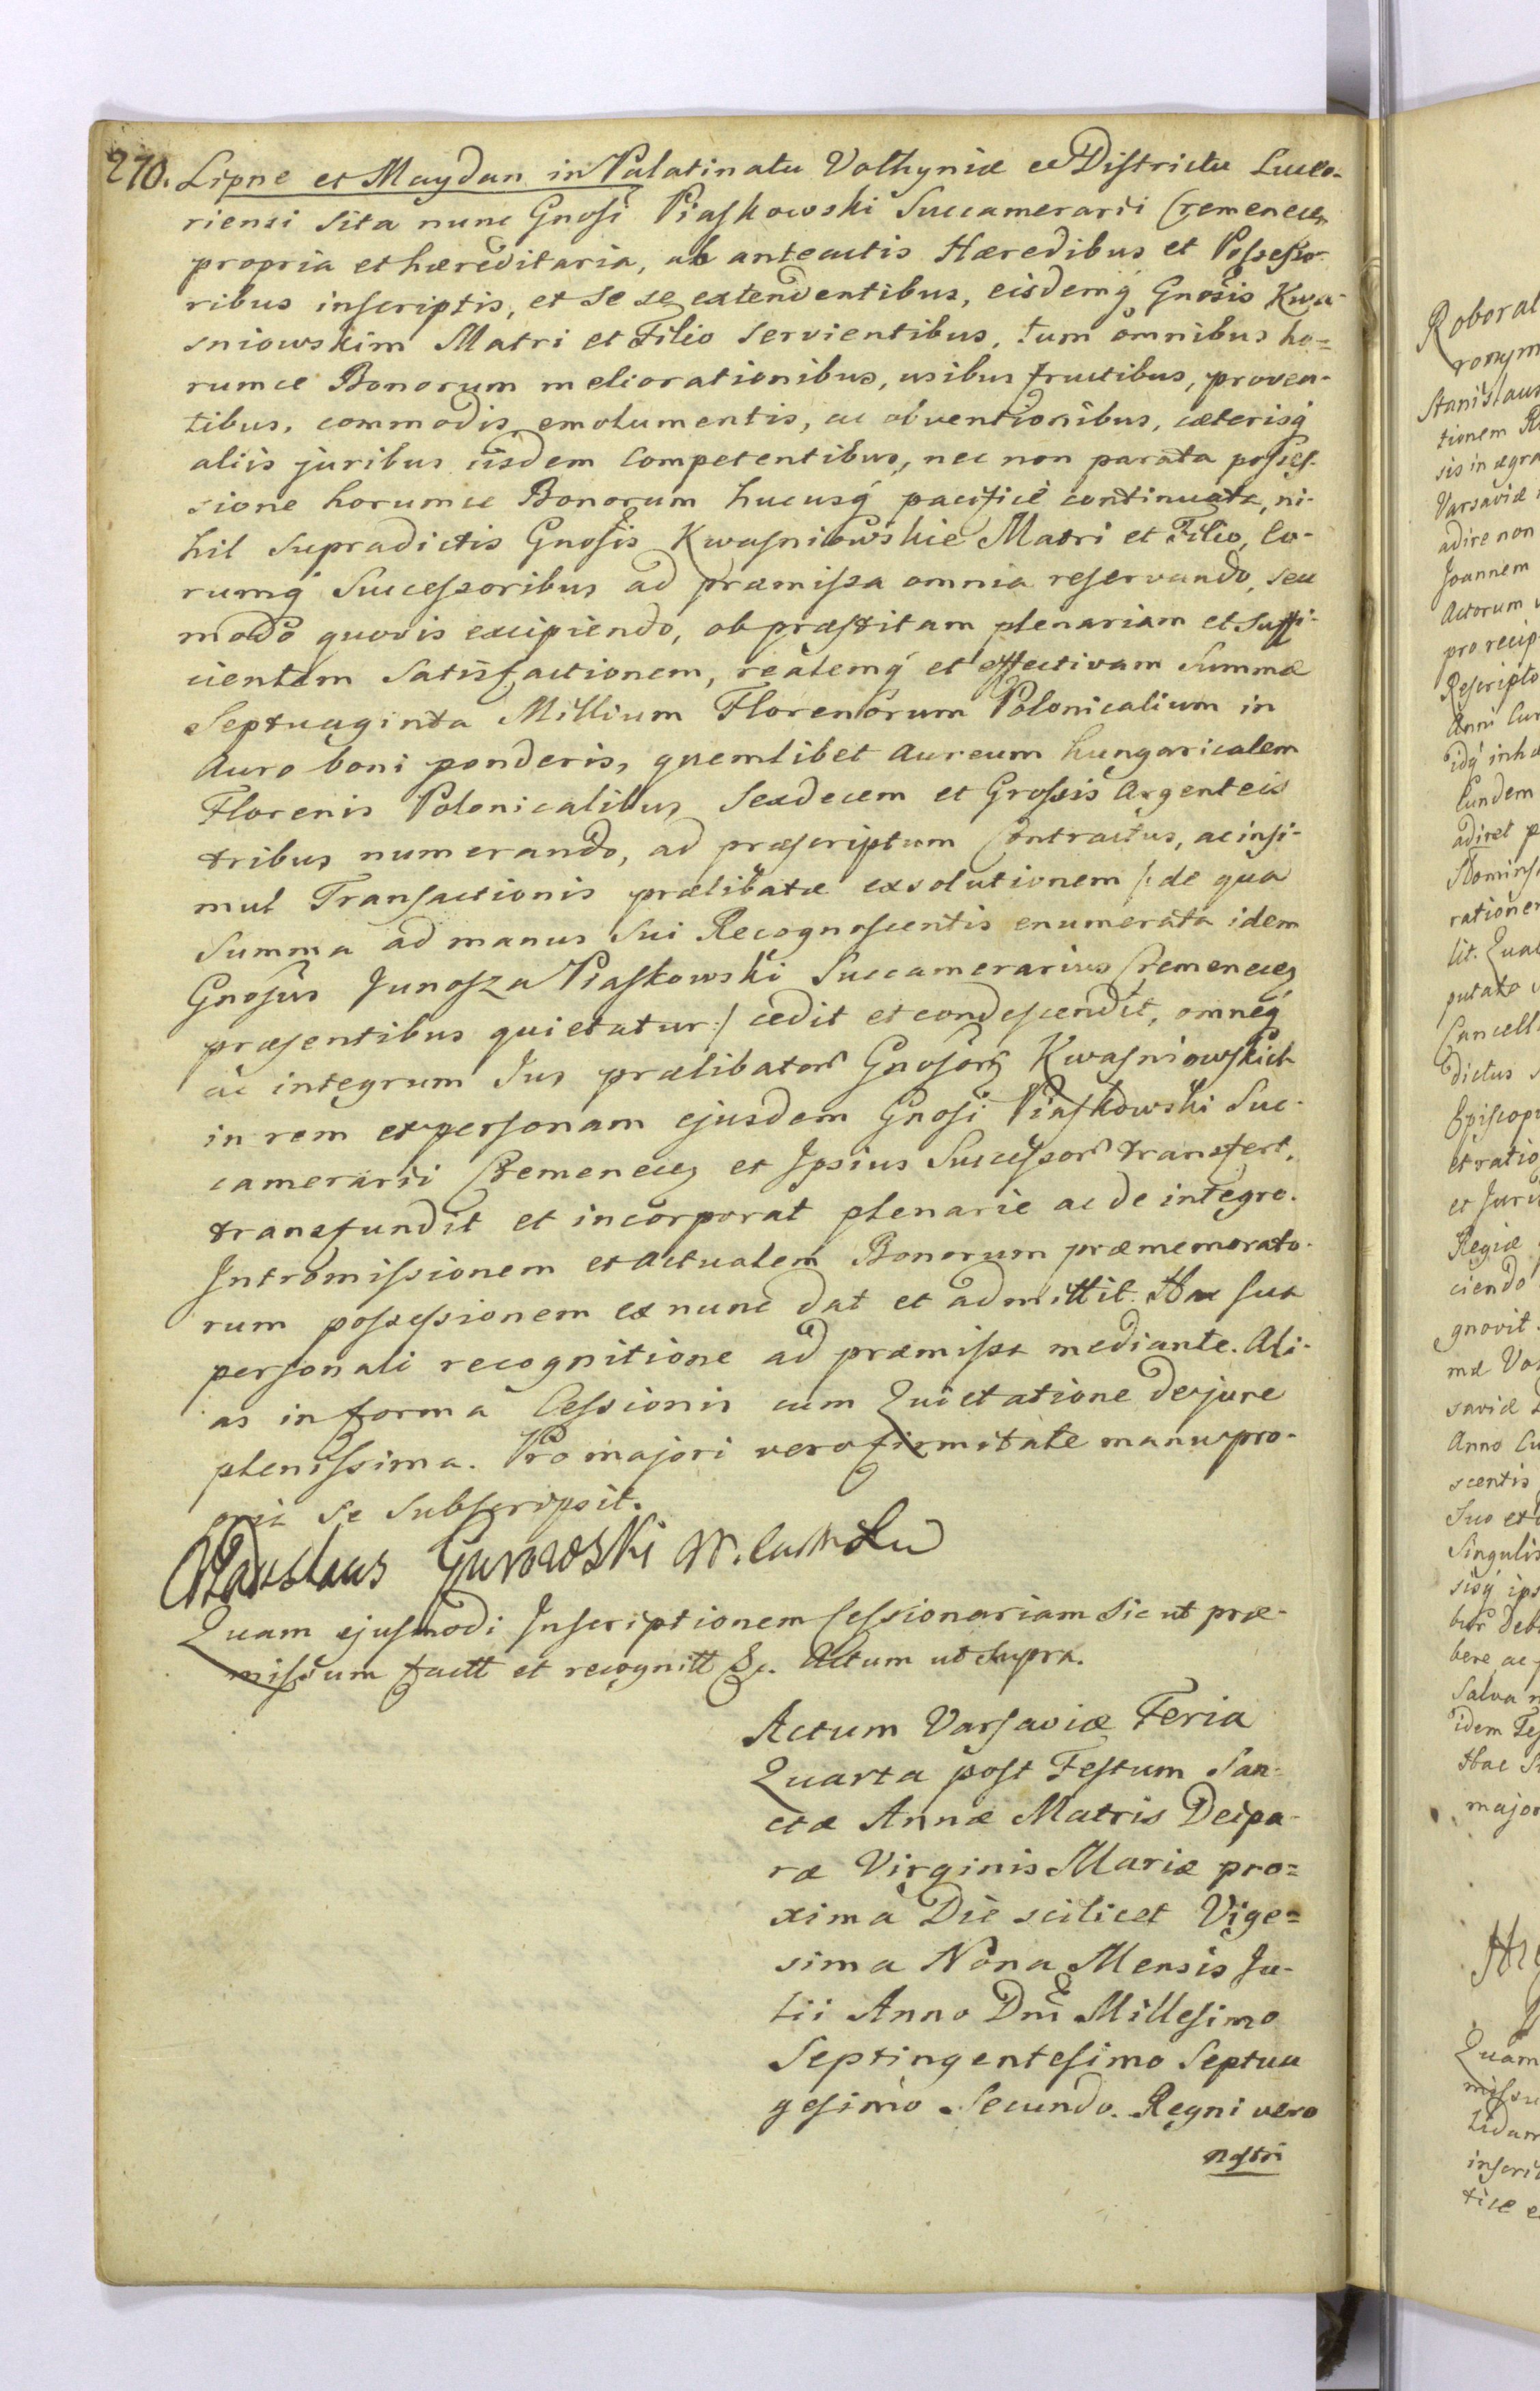 270. Lipne et Maydan in Palatinatu Volhyniæ et Districtu Luceo-
riensi sita nunc Gnosi Piaskowski Succamerarii Cremenecen
propria et hæreditaria, ab anteactis Hæredibus et Possesso-
ribus inscriptis, et se se extendentibus, eisdemq́ Gnosis Kwa-
sniowskim Matri et Filio servientibus, tum omnibus ho=
rumce Bonorum meliorationibus, usibus fructibus, proven-
tibus, commodis emolumentis, ac obventionibus, cæterisq́
aliis juribus iisdem Competentibus, nec non parata posses-
sione horumce Bonorum hucusq́ pacificè continuata, ni-
hil supradictis Gnosis Kwasniowskie Matri et Filio, Eo-
rumq́ Successoribus ad præmissa omnia reservando, seu
modo quovis excipiendo, ob præstitam plenariam et suffi-
cientem satisfactionem, realemq́ et effectivam Summæ
Septuaginta Millium Florenorum Polonicalium in
Auro boni ponderis, quemlibet Aureum hungaricalem
Florenis Polonicalibus Sexdecem et Grossis Argenteis
tribus numerando, ad præscriptum Contractus, ac insi-
mul Transactionis prælibatæ exsolutionem /: de qua
Summa ad manus sui Recognoscentis enumerata idem
Gnosus Junosza Piaskowski Succamerarius Cremenecen
præsentibus quietatur :/ cedit et condescendit, omneq́
ac integrum Jus prælibator Gnosor Kwasniowskich
in rem et personam ejusdem Gnosi Piaskowski Suc-
camerarii Cremenecen et Ipsius Successor transfert,
transfundit et incorporat plenarie ac de integro.
Intromissionem et actualem Bonorum præmemorato-
rum possessionem ex nunc dat et admittit. Hac sua
personali recognitione ad præmissa mediante. Ali-
as in forma Cessionis cum Quietatione de jure
plenissima. Pro majori vero firmitate manu pro-
pria se subscripsit.
Władislaus Gurowski
Quam ejusmodi Inscriptionem Cessionariam sic ut præ-
missum factt et recognitt &c. Actum ut supra.
Actum Varsaviæ Feria
Quarta post Festum San-
ctæ Annæ Matris Deipa-
ræ Virginis Mariæ pro=
xima Die scilicet Vige=
sima Nona Mensis Ju-
lii Anno Dni Millesimo
Septingentesimo Septua
gesimo Secundo. Regni vero
nostri
Roborat
ronym
Stanislaus
tionem
sis in ægra
Varsaviæ
adire non
Joannem
Actorum
pro recip
Rescripto
Anni Cur
idq́ inhæ
Eundem
adiret p
Nomins
rationem
lit. Qua
putato
Cancell
dictus
Episcop
et ratio
et Juri
Regiæ
ciendo
gnovit.
mæ Vo
saviæ
Anno Cu
scentis
Suo et
Singulis
sisq́ ips
Deb
bere ac
Salva
idem Fe
Hac
major
Quam
missu
inscri